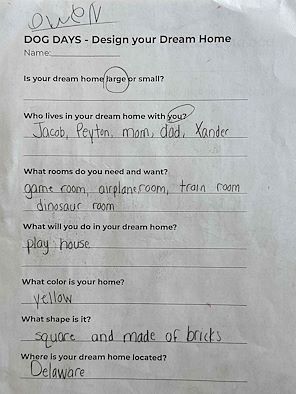 owen
DOG DAYS - Design your Dream Home
Name:
Is your dream home large or small?
Who lives in your dream home with you?
Jacob, Peyton, mom, dad, Xander
What rooms do you need and want?
game room, airplane room, train room
dinosaur room
What will you do in your dream home?
play house
What color is your home?
yellow
What shape is it?
square and made of bricks
Where is your dream home located?
Delaware